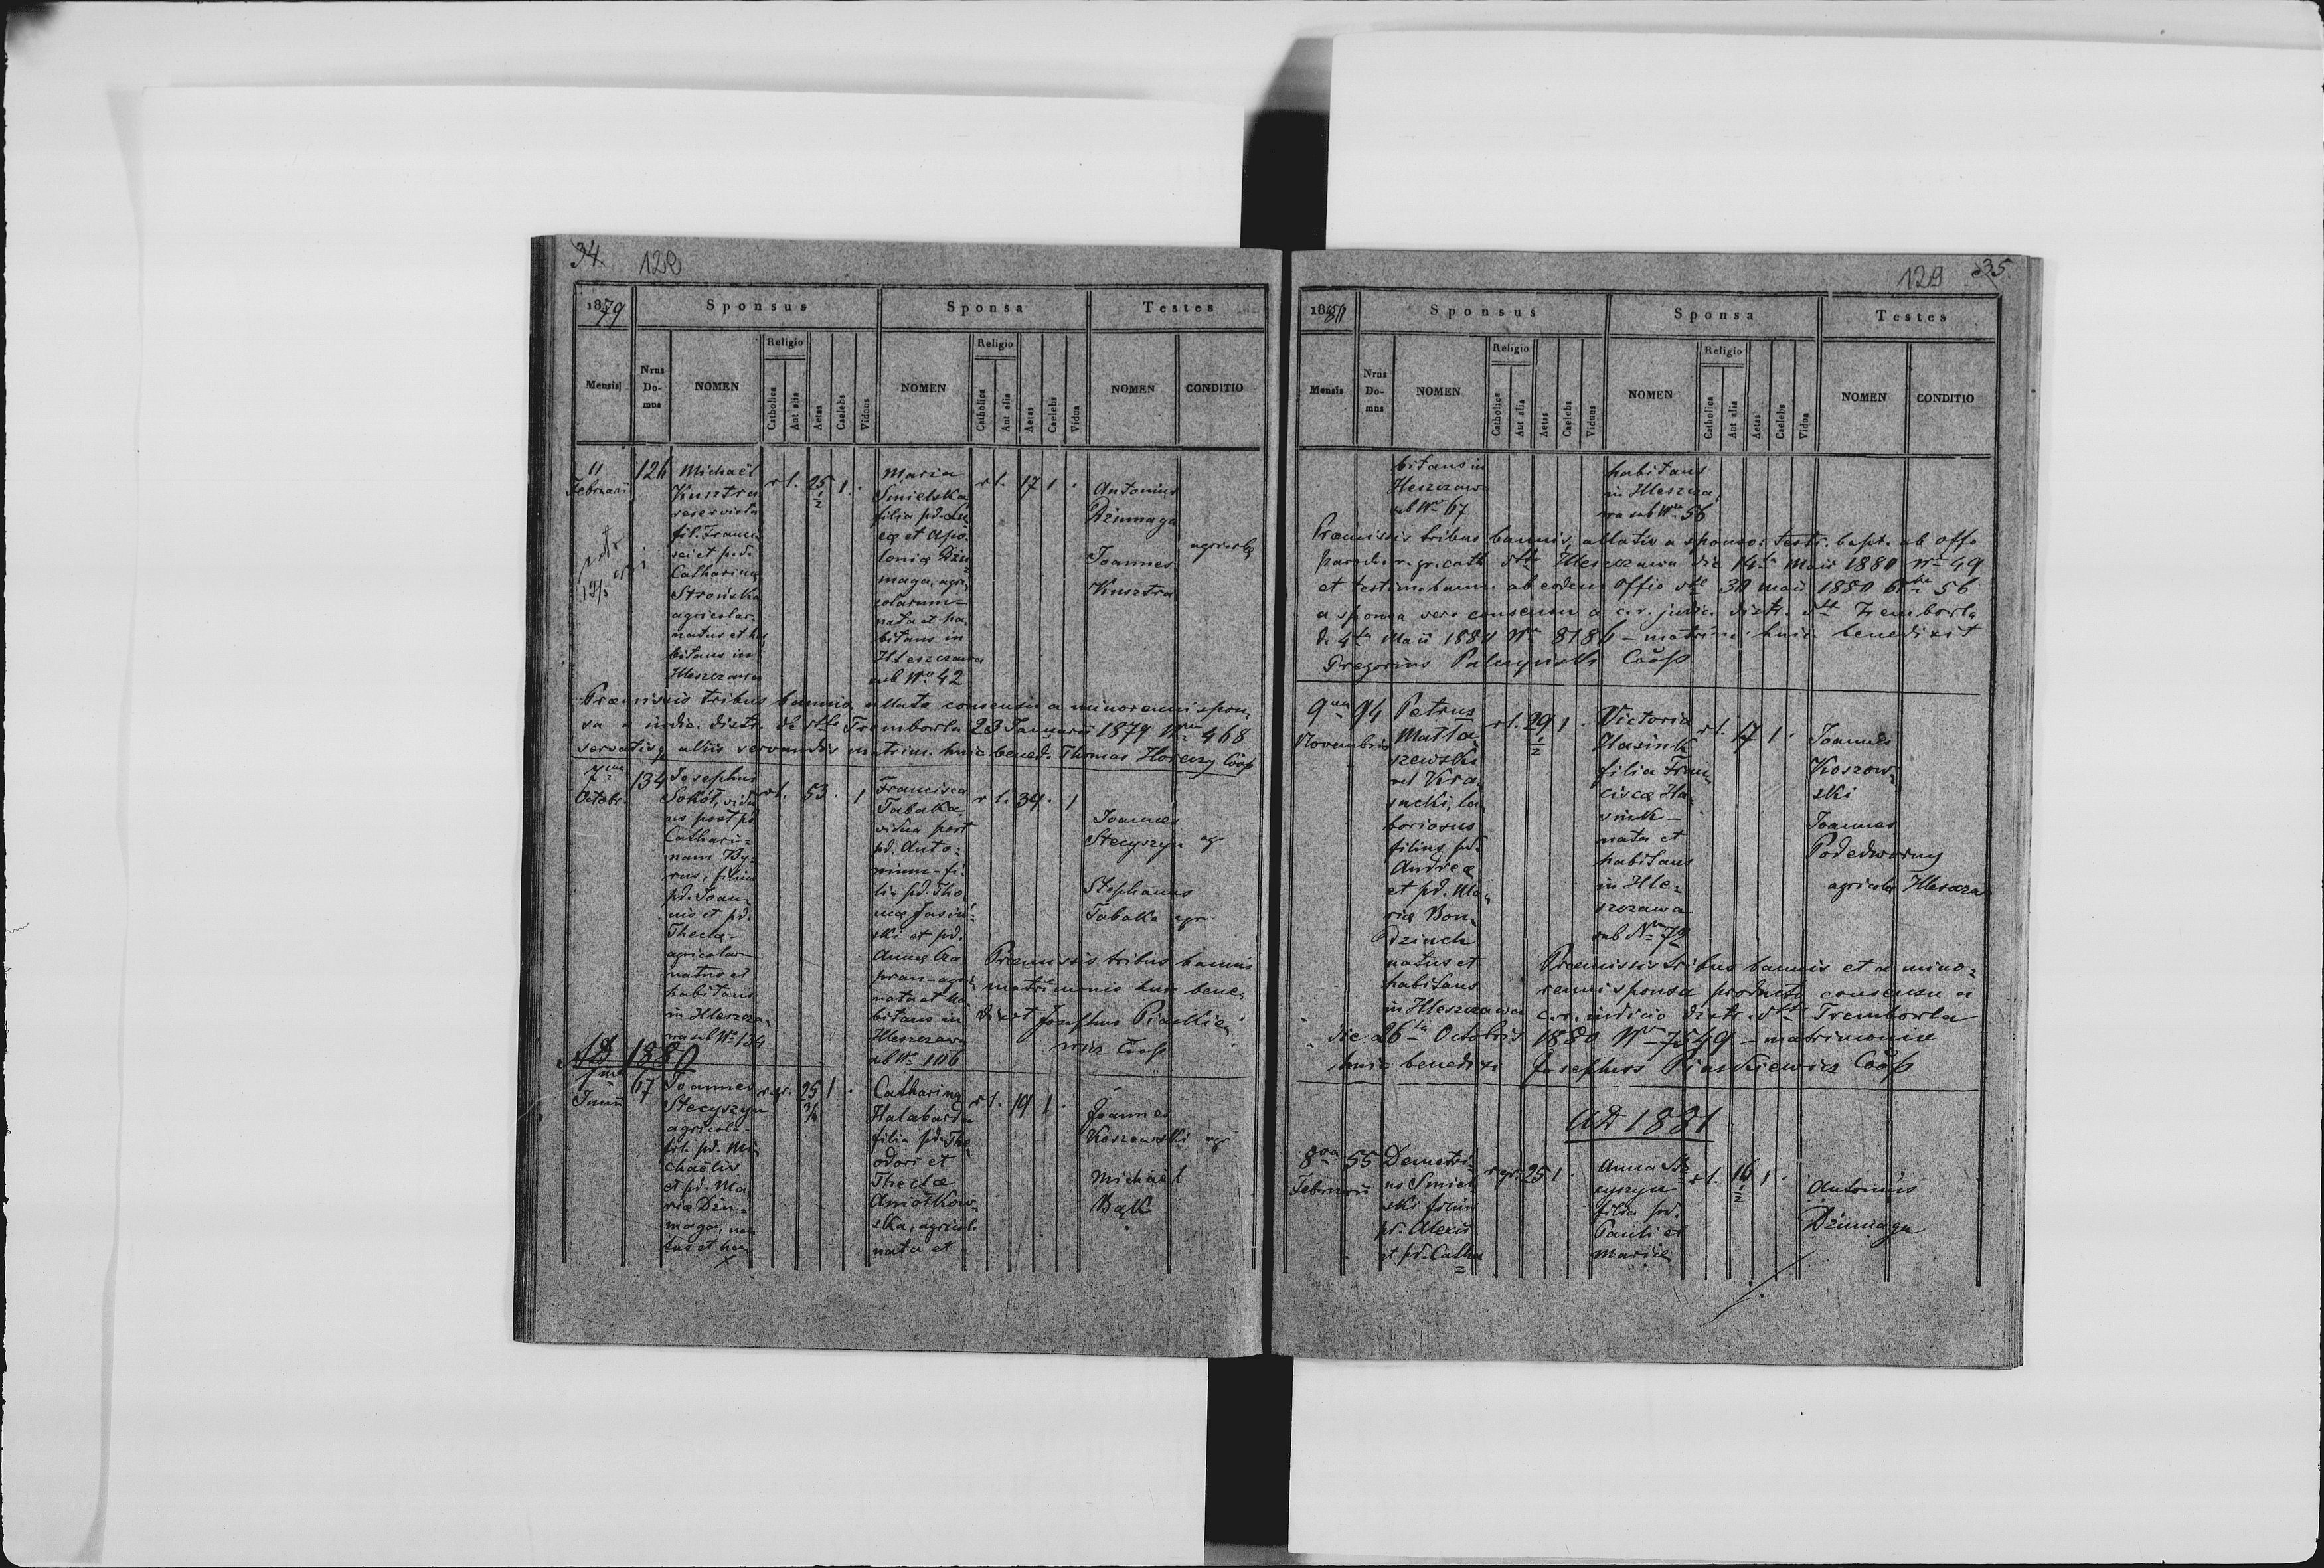 34. 128
1879 Sponsus Sponsa Testes
Mensis Nrus Domus NOMEN Religio Catholica Aut alia Aetas Caelebs Viduus NOMEN Religio Catholica Aut alia Aetas Caelebs Vidua NOMEN CONDITIO
11 Februarii
126
Michaël
Kusztra
reservista
fil. Franci
sci et pd.
Catharinæ
Strońska
agricolar.
natus et ha
bitans in
Hleszczawa
r l. 25 1/2 1 .
Maria
Smielska
filia pd. Lu
cæ et Apo
loniæ Dżu
maga, agri
colarum –
nata et ha
bitans in
Hleszczawa
sub Nº 42
r l. 17 1 .
Antonius
Dżumaga
Joannes
Kusztra
agricolæ
Præmissis tribus bannis, allato consensu a minorenni spon
sa a judic. distr. de dtto Trembowla 23 Januarii 1879 Nro 468
servatisq. aliis servandis matrim. huic bened. Thomas Coop
7ma Octobr.
134
Josephus
Sokół, vidu
us post pd.
Cathari=
nam By=
rus, filius
pd. Joan
nis et pd.
Thecla –
agricolarum
natus et
habitans
in Hleszcza
wa sub Nº 134
r l. 53 . 1
Francisca
Tabaka,
vidua post
pd. Anto=
nium – fi
lia pd. Tho
mæ Jasiń=
ski et pd.
Annæ
nata et ha
bitans in
Hleszczawa
sub Nº 106
r l. 39 . 1
Joannes
Stecyszyn ag
Stephanus
Tabaka agr
Præmissis tribus bannis
matrimonio huic bene
dixit Josephus Piaskie
wicz Coop
AD 1880
1ma Junii
67
Joannes
Stecyszyn
agricola –
fil. pd. Mi
chaëlis
et pd. Ma
riæ Dżu=
maga, na
tus et ha
r gr. 25 3/4 1 .
Catharina
Halabarda
filia pd. The
odori et
Theclæ
Aniołkow=
ska, agricol.
nata et
r l. 19 1 .
Joannes
Koszowski agr
Michaël
Bąk
129 35.
1880 Sponsus Sponsa Testes
Mensis Nrus Domus NOMEN Religio Catholica Aut alia Aetas Caelebs Viduus NOMEN Religio Catholica Aut alia Aetas Caelebs Vidua NOMEN CONDITIO
bitans in
Hleszczawa
sub Nº 67
habitans
in Hleszcza
wa sub Nro 56
Præmissis tribus bannis, allatis a sponso: testi. bapt. ab offo
paroch. r. gr. cath. dtto Hleszczawa die 14ta Maii 1880 Nro 49
et testim. bann. ab eodem offio dtto 30 maii 1880 56
a sponsa vero consensu a c.r. judic. distr. dtto Trembowla
de 4ta Maii 1880 Nro 8186 – matrim. huic benedixit
Gregorius Coop
9na Novembris
94
Petrus
Matła
szewski
vel Kra
sucki, la
boriosus
filius pd.
Andreæ
et pd. Ma
riæ Bon
dzinch
natus et
habitans
in Hleszczawa
r l. 29 1/2 1 .
Victoria
Hasink
filia Fran
ciscæ Ha
sink –
nata et
habitans
in Hle=
szczawa
sub Nro 79
r l. 17 1 .
Joannes
Koszow=
ski
Joannes
Podedworny
agricolæ Hleszcza
Præmissis tribus bannis et a mino=
renni sponsa producto consensu a
c.r. iudicio distr. dtto Trembowla
die 26ta Octobris 1880 Nro 7549 – matrimonio
huic benedixi Josephus Piaskiewicz Coop
AD 1881
8va Februarii
55
Demetri=
us Smiel
ski filius
pd. Alexii
et pd. Catha
r gr. 25 1 .
Anna Ste
cyszyn
filia pd.
Pauli et
Mariæ
r l. 16 1/2 1 .
Antonius
Dżumaga